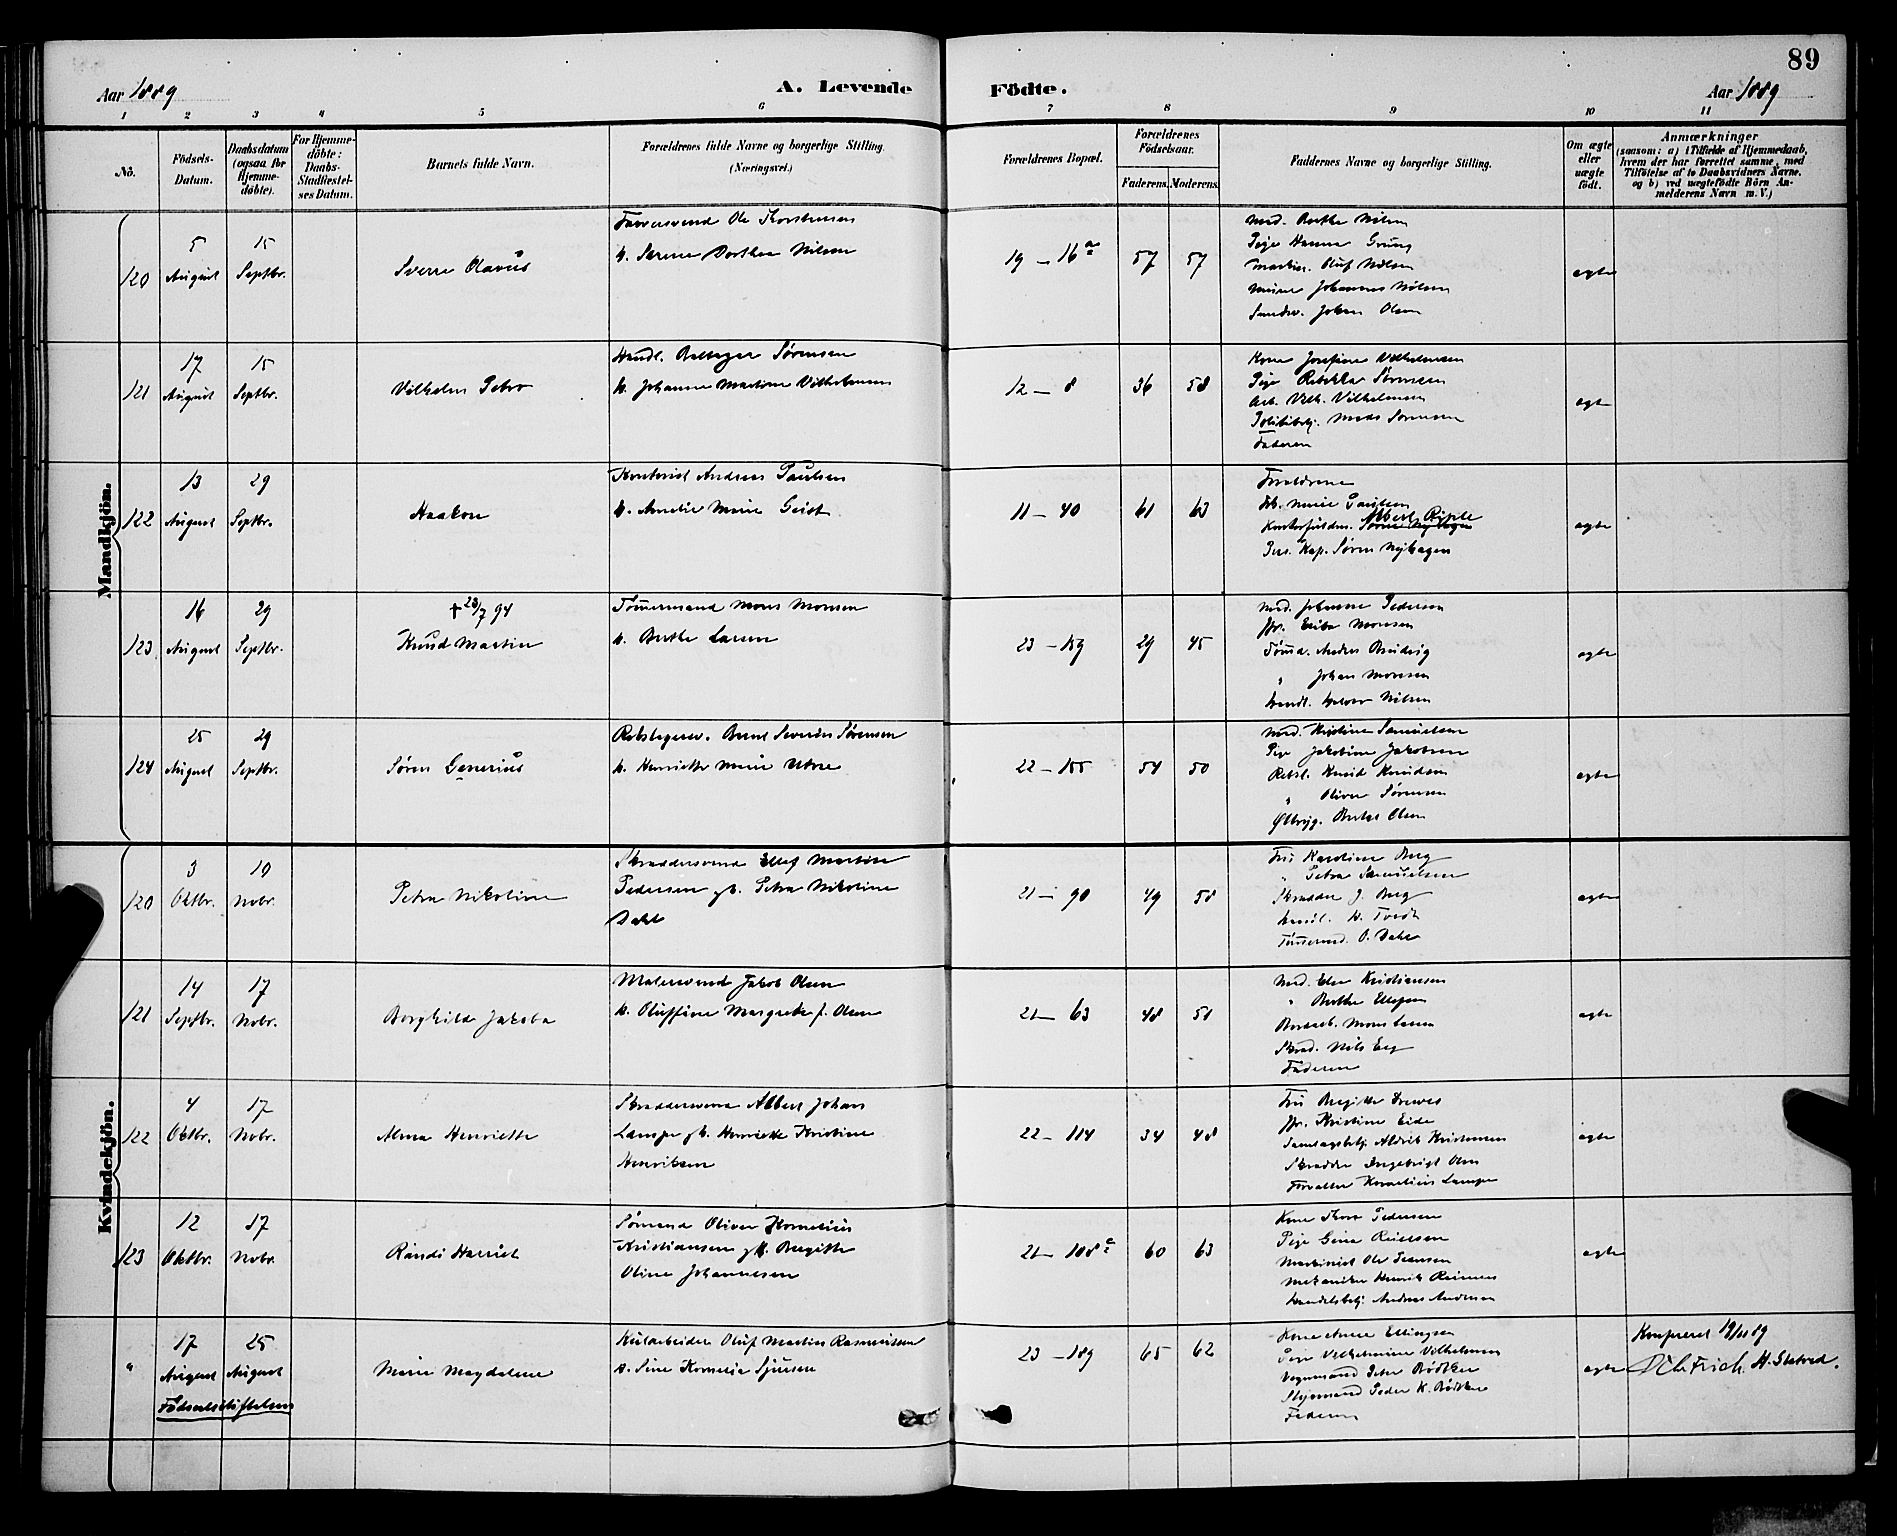 89
Aar 1889
A. Levende Födte.
Aar 1889
1 2 3 4 5 6 7 8 9 10 11
No.
Födsels-Datum.
Daabsdatum (ogsaa for Hjemme-döbte).
For Hjemme-döbte: Daabs-Stadfæstel-ses Datum.
Barnets fulde Navn.
Forældrenes fulde Navne og borgerlige Stilling. (Næringsvei.)
Forældrenes Bopæl.
Forældrenes Födselsaar.
Faderens. Moderens.
Faddernes Navne og borgerlige Stilling.
Om ægte eller uægte födt.
Anmærkninger
(saasom: a) i Tilfælde af Hjemmedaab,
hvem der har forrettet samme, med
Tilföielse af to Daabsvidners Navne,
og b) ved uægtefödte Börn An-
melderens Navn m. V.)
Mandkjön.
120
5 August
15 Septbr.
Sverre Olavus
Ole Torstensen
h. Serene Dorthea Nilsen
19 — 16 a
57 57
Mad. Berthe Nilsen
Pige Hanna Grung
Oluf Nilsen
Murer Johannes Nilsen
Johan Olsen
ægte
121
17 August
15 Septbr.
Vilhelm Petro
Handl. Sørensen
h. Johanne Martine Vilhelmsen
12 — 8
36 58
Kone Josefine Vilhelmsen
Pige Rebekka Sørensen
Arb. Vilh. Vilhelmsen
Politibetj. Mads Sørensen
Faderen
ægte
122
13 August
29 Septbr.
Haakon
Kontorist Andreas Paulsen
h. Amelie Marie Geist
11 — 40
61 63
Forældrene
Marie Paulsen
Albert Riple
Kap. Søren Nyhagen
ægte
123
16 August
29 Septbr.
† 23/7 94
Knud Martin
Tømmermand Mons Monsen
h. Berthe Larsen
23 — 159
29 45
Mad. Johanne Pedersen
Jfr. Monsen
Tømd. Anders
" Johan Monsen
Handl. Nilsen
ægte
124
25 August
29 Septbr.
Søren Generius
Bernt Severin Sørensen
h. Henriette Marie Utne
22 — 155
54 50
Mad. Kristine Samuelsen
Pige Jakobine Jakobsen
Rebsl. Knud Knudsen
" Oliver Sørensen
Ølbryg. Olsen
ægte
Kvindekjön.
120
3 Oktbr.
10 Novbr.
Petra Nikoline
Skræddersvend Ellef Martin
Pedersen og h. Petra Nikoline
Dahl
21 — 90
49 58
Fru Karoline Berg
" Petra Samuelsen
Skrædder J. Berg
Handl. H. Tvedt
Tømmermd. O. Dahl
ægte
121
14 Septbr.
17 Novbr.
Borghilde Jakoba
Malersvend Jakob Olsen
h. Oluffine Margrethe f. Olsen
21 — 63
48 51
Mad. Else Kristiansen
" Berthe Ellefsen
Mons Larsen
Skræd. Nils Berg
Faderen
ægte
122
4 Oktbr.
17 Novbr.
Alma Henriette
Skræddersvend Albert Johan
Lampe og h. Henriette Kristine
Henriksen
22 — 114
34 48
Fru Birgitte Drewes
Jfr. Kristine Eide
Aldrik Kristensen
Skrædder Ingebrigt Olsen
Forvalter Kornelius Lampe
ægte
123
12 Oktbr.
17 Novbr.
Randi Harriet
Sømand Oliver Kornelius
Kristiansen og h. Birgitte
Oline Johannesen
21 — 108 c
60 63
Kone Thora Pedersen
Pige Gina
Maskinist Ole
Mekaniker Henrik Reimers
Handelsbetj. Andreas Andersen
ægte
"
17 August
25 August
Fødselsstiftelsen
Marie Magdalene
Kularbeider Oluf Martin Rasmussen
h. Sine Kornelia Sjursen
23 — 189
65 62
Kone Anne Ellingsen
Pige Vilhelmine Vilhelmsen
Vognmand Peter Bødtker
Styrmand Peder K. Bødtker
Faderen
ægte
Konfereret 19/11 89
H. Slatved.